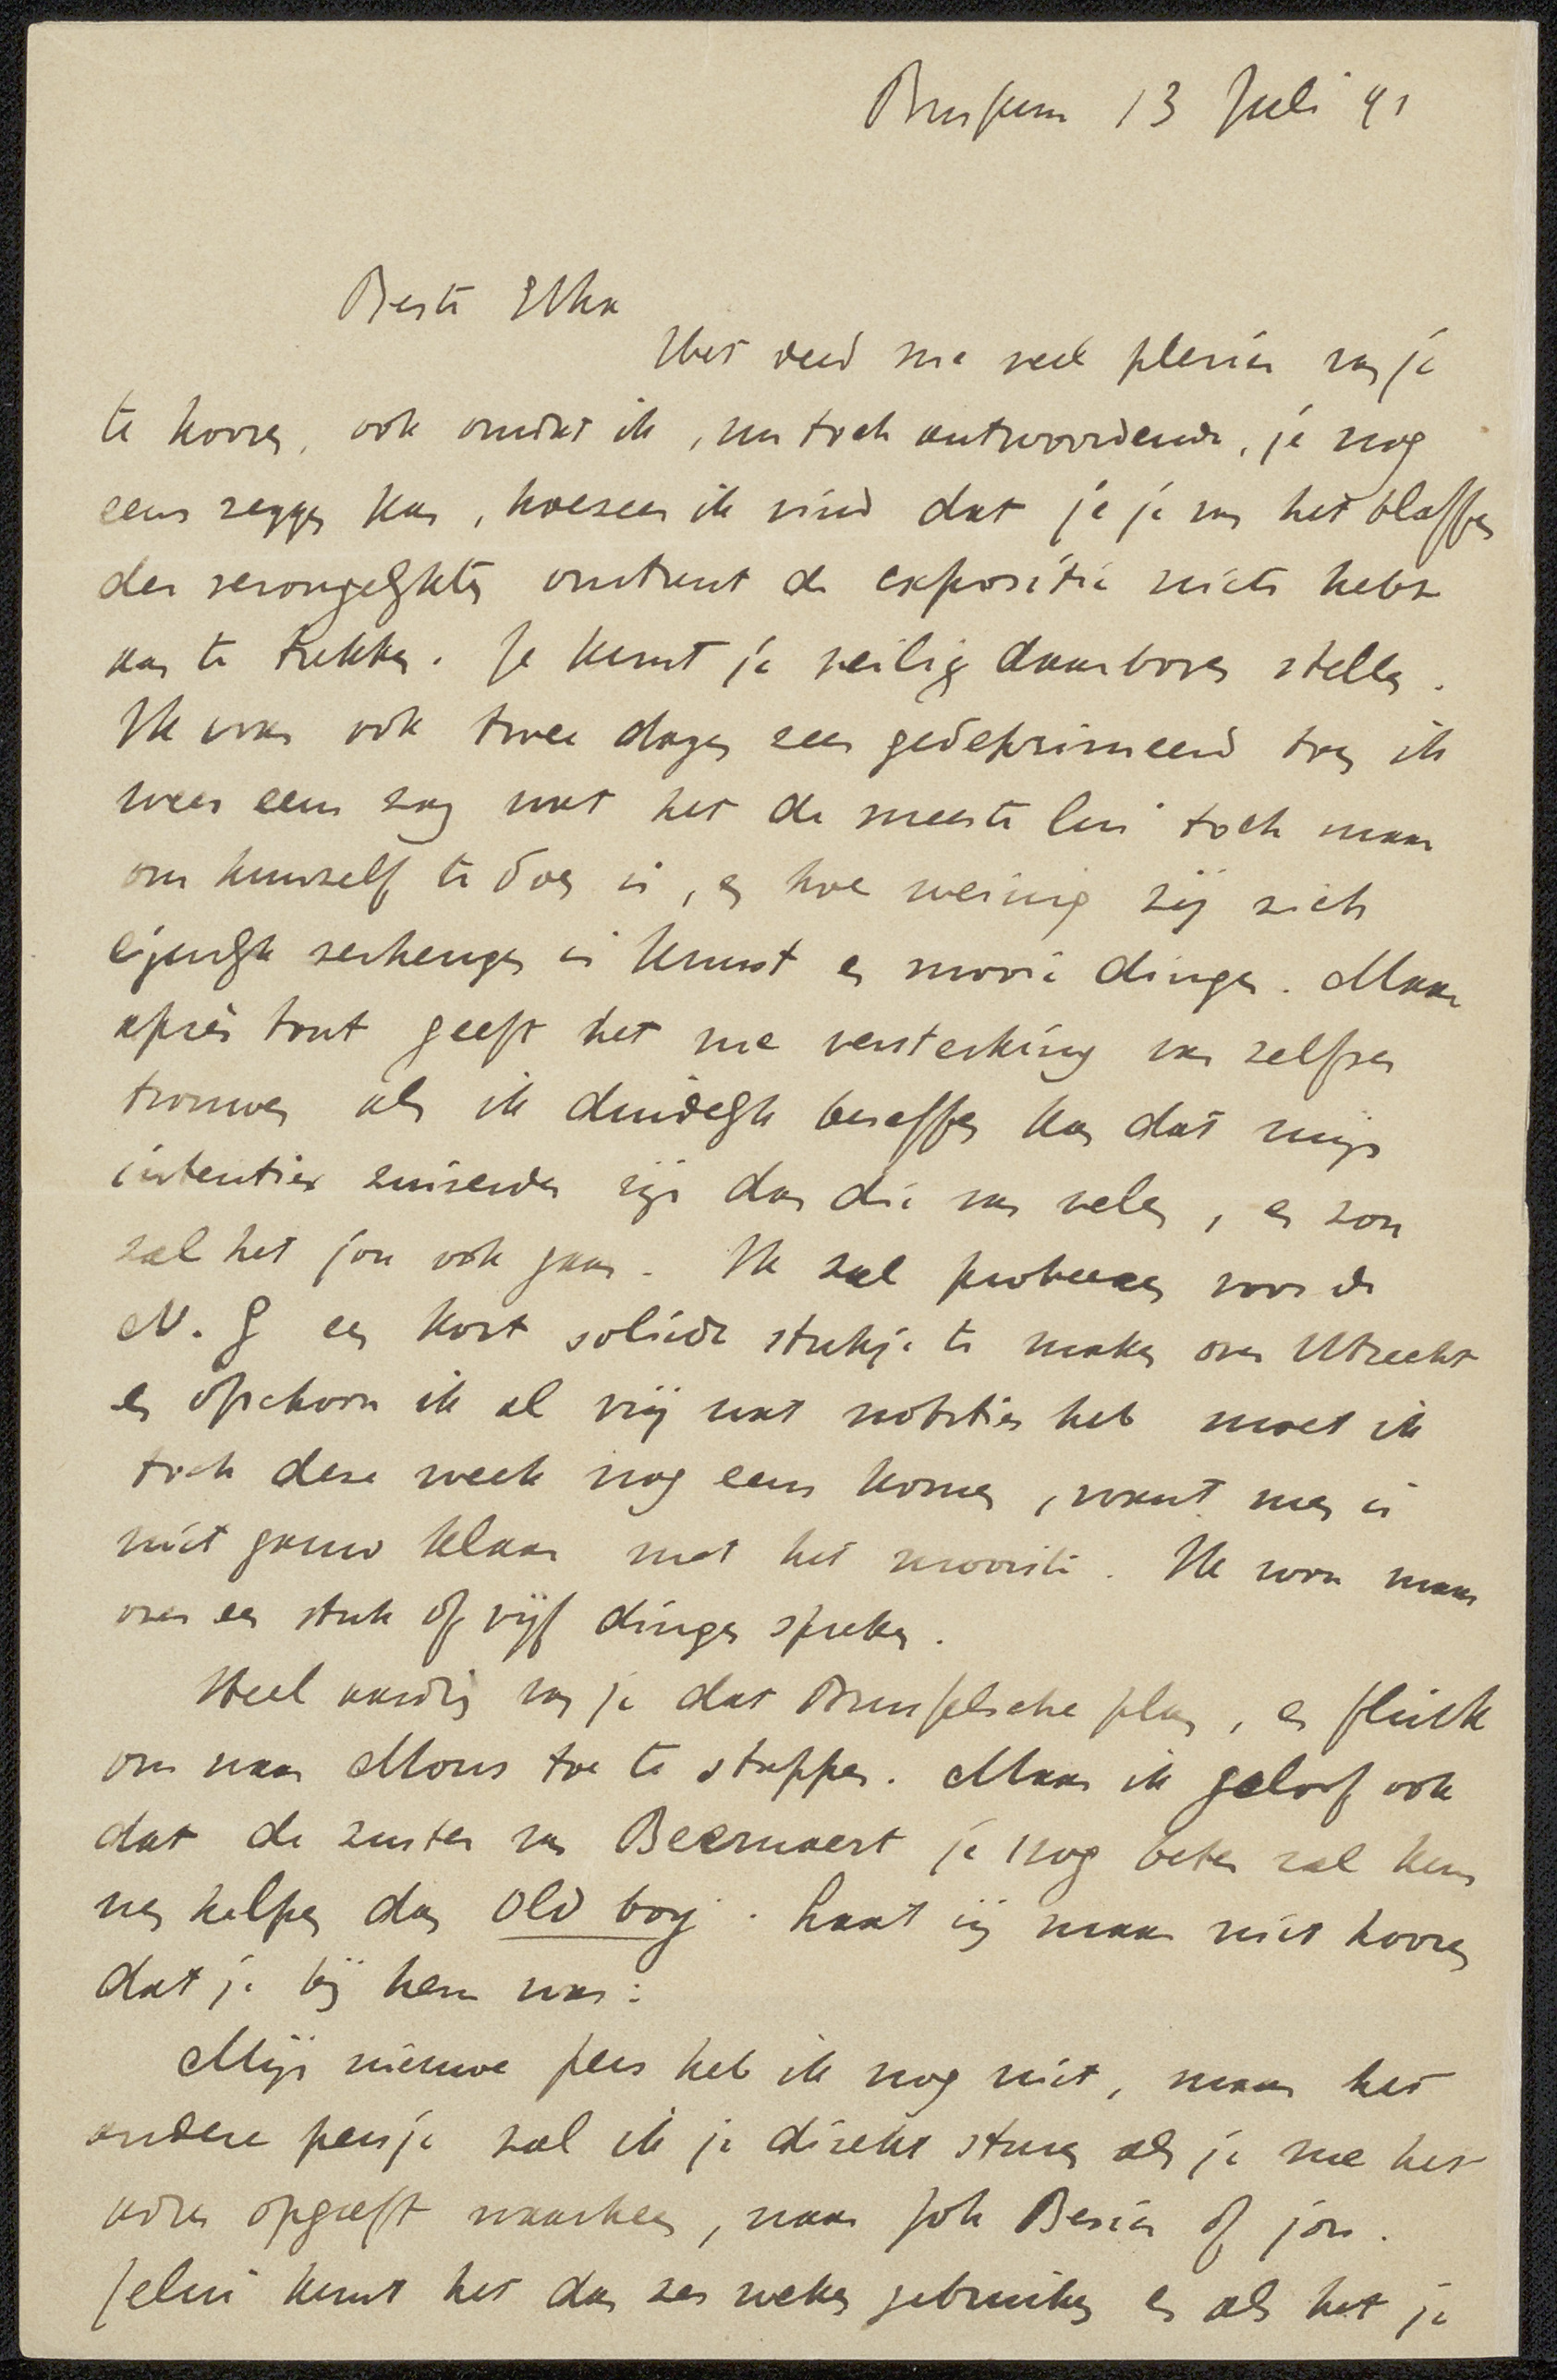 Bussum 13 Juli 91
Beste Etha
Het deed me veel plezier van je
te hooren, ook omdat ik, nu toch antwoordende, je nog
eens zeggen kan, hoezeer ik vind dat je je van het blaffen
der verongelykten omtrent de expositie niets hebt
aan te trekken. Je kunt je veilig daarboven stellen.
Ik was ook twee dagen zeer gedeprimeerd toen ik
weer eens zag wat het de meeste lui toch maar
om hunzelf te doen is, en hoe weinig zij zich
eigenlyk verheugen in kunst en mooie dingen. Maar
après tout geeft het me versterking van zelfver
trouwen als ik duidelyk beseffen kan dat mijn
intenties zuiverder zijn dan die van velen, en zoo
zal het jou ook gaan. Ik zal probeeren voor de
N. G een kort solide stukje te maken over Utrecht
en ofschoon ik al vrij wat notities heb moet ik
toch deze week nog eens komen, want men is
niet gauw klaar met het mooiste. Ik wou maar
over een stuk of vijf dingen spreken.
Heel aardig van je dat Brusselsche plan, en flink
om naar Mons toe te stappen. Maar ik geloof ook
dat de zuster van Beernaert je nog beter zal kun
nen helpen dan old boy. Laat zij maar niet hooren
dat je bij hem was:
Mijn nieuwe pers heb ik nog niet, maar het
andere persje zal ik je direkt sturen als je me het
adres opgeeft waarheen, naar Joh Besier of jou.
Jelui kunt het dan zes weken gebruiken en als het je